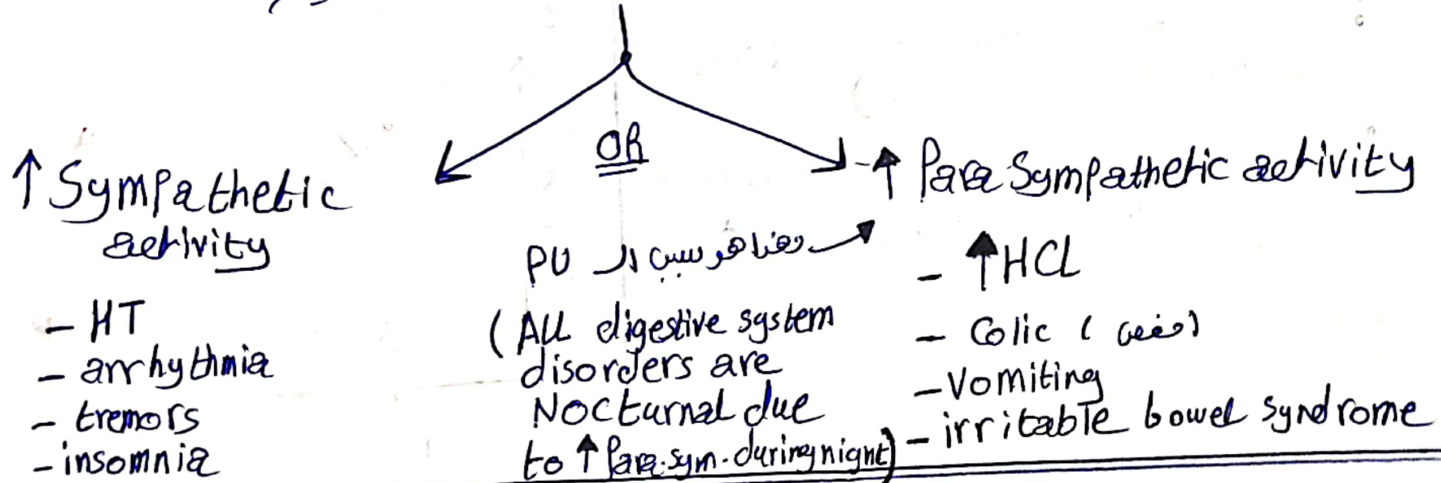 OR
↑ Sympathetic
activity
- HT
- arrhythmia
- tremors
- insomnia
وهذا هو سبب ال PU
(ALL digestive system
disorders are
Nocturnal due
to ↑ Para.sym. during night)
- ↑ Para Sympathetic activity
- ↑ HCL
- Colic (مغص)
- Vomiting
- irritable bowel syndrome